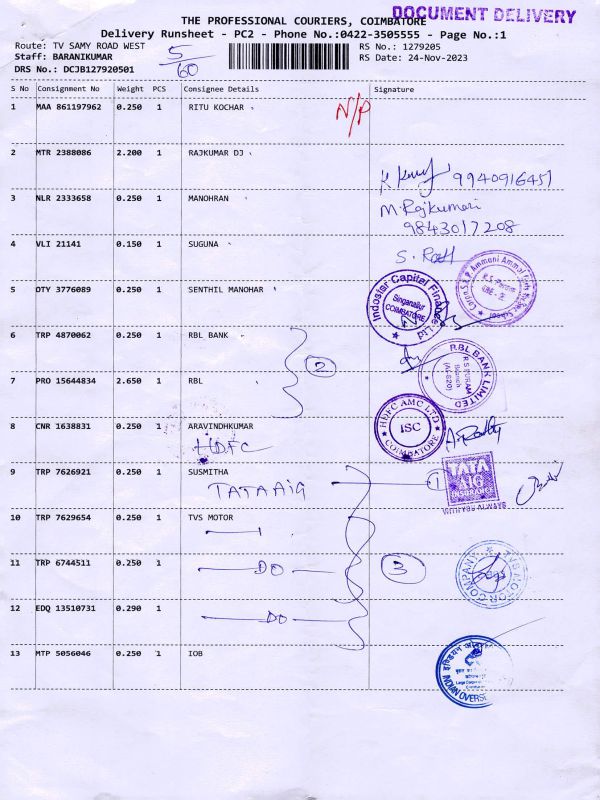 THE PROFESSIONAL COURIERS, COIMBATORE
DOCUMENT DELIVERY
Delivery Runsheet - PC2 - Phone No.:0422-3505555 - Page No.:1
Route: TV SAMY ROAD WEST
5/60
RS No.: 1279205
Staff: BARANIKUMAR
RS Date: 24-Nov-2023
DRS No.: DCJB127920501
S No Consignment No Weight PCS Consignee Details Signature
1 MAA 861197962 0.250 1 RITU KOCHAR N/P
2 MTR 2388086 2.200 1 RAJKUMAR DJ
9940916451
3 NLR 2333658 0.250 1 MANOHRAN M.Rajkumari
9843017208
4 VLI 21141 0.150 1 SUGUNA
5 OTY 3776089 0.250 1 SENTHIL MANOHAR
Indostar Capital Finance
Singanallur
COIMBATORE
6 TRP 4870062 0.250 1 RBL BANK
2
RBL BANK LIMITED
R S PURAM
Branch
7 PRO 15644834 2.650 1 RBL
8 CNR 1638831 0.250 1 ARAVINDHKUMAR
HDFC
HDFC AMC LTD
ISC
COIMBATORE
9 TRP 7626921 0.250 1 SUSMITHA
TATA AIG
1
TATA
AIG
INSURANCE
WITH YOU ALWAYS
10 TRP 7629654 0.250 1 TVS MOTOR
11 TRP 6744511 0.250 1
DO
3
TVS MOTOR COMPANY
12 EDQ 13510731 0.290 1
DO
13 MTP 5056046 0.250 1 IOB
INDIAN OVERSE